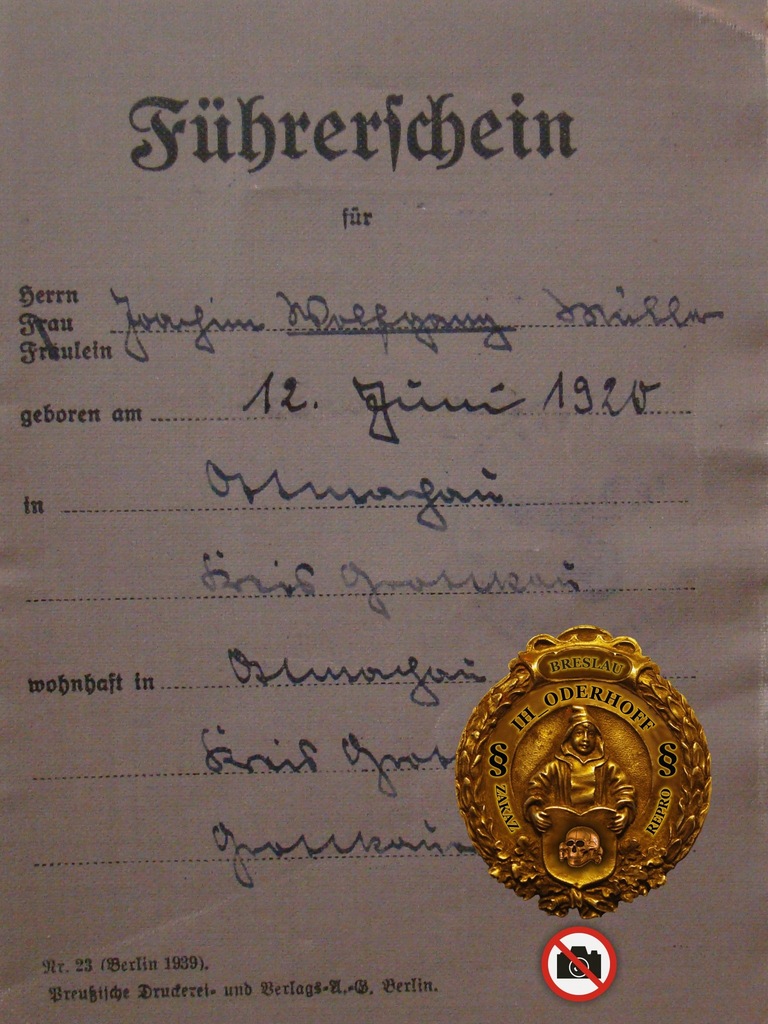 Führerschein
für
Herrn
Frau Joachim Wolfgang Müller
Fräulein
geboren am 12. Juni 1920
in Ottmachau
Kreis Grottkau
wohnhaft in Ottmachau
Kreis Grot
Grottkau
BRESLAU
IH ODERHOFF
§ §
ZAKAZ REPRO
Nr. 23 (Berlin 1939).
Preußische Druckerei- und Verlags-A.-G. Berlin.